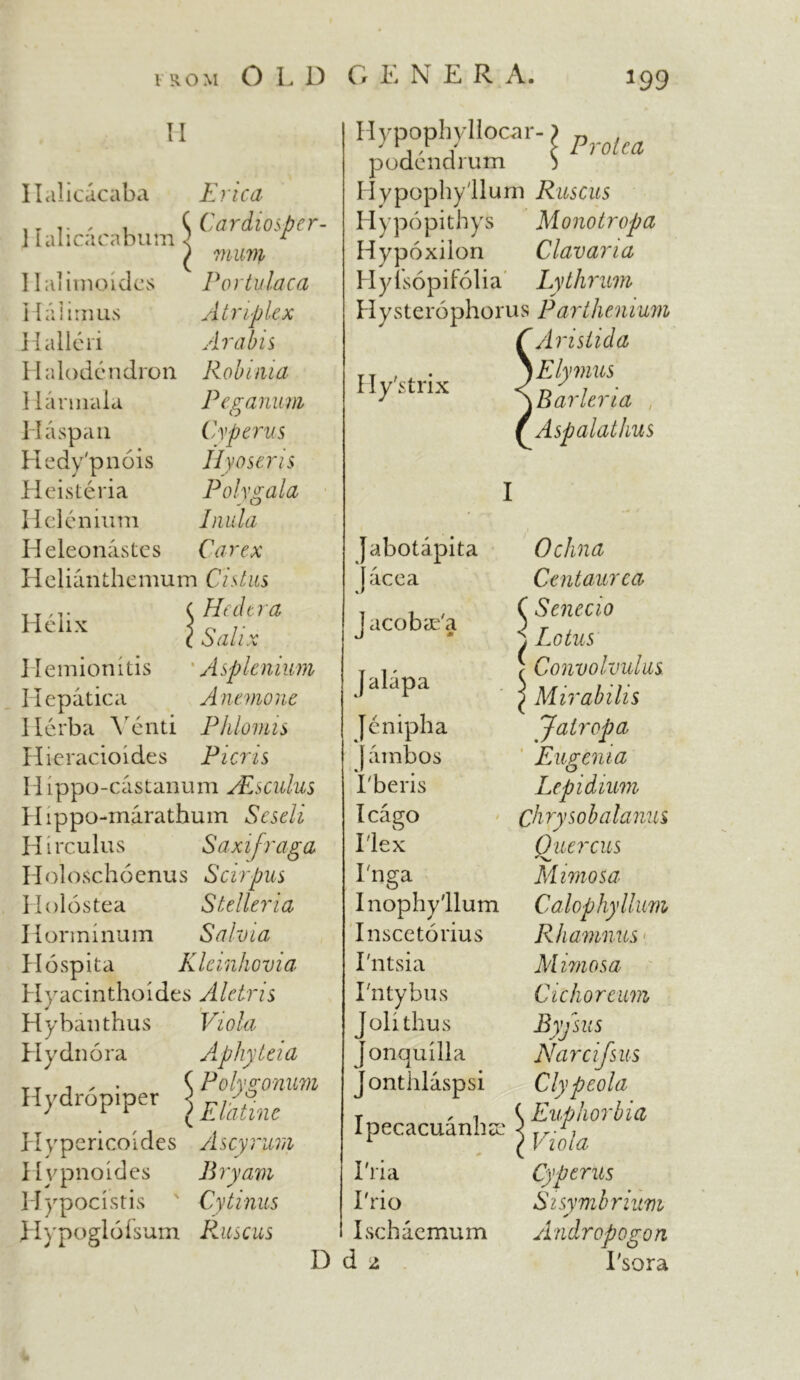 FROM OLD GENERA. 199
H
Halicácaba Erica
Halicácabum { Cardiosper-
mum
Halimoídes Portulaca
Hálimus Atriplex
Halléri Arabis
Halodéndron Robinia
Hármala Peganum
Háspan Cyperus
Hedy'pnóis Hyoseris
Heistéria Polygala
Helénium Inula
Heleonástes Carex
Heliánthemum Cistus
Hélix { Hedera
Salix
Hemionítis Asplenium
Hepática Anemone
Hérba Vénti Phlomis
Hieracioides Picris
Hippo-cástanum Æsculus
Hippo-márathum Seseli
Hirculus Saxifraga
Holoschóenus Scirpus
Holóstea Stelleria
Hormínum Salvia
Hóspita Kleinhovia
Hyacinthoídes Aletris
Hybánthus Viola
Hydnóra Aphyteia
Hydrópiper { Polygonum
Elatine
Hypericoídes Ascyrum
Hypnoídes Bryam
Hypocístis Cytinus
Hypoglófsum Ruscus
Hypophyllocar-
podéndrum } Protea
Hypophy'llum Ruscus
Hypópithys Monotropa
Hypóxilon Clavaria
Hyfsópifólia Lythrum
Hysteróphorus Parthenium
Hy'strix { Aristida
Elymus
Barleria
Aspalathus
I
Jabotápita Ochna
Jácea Centaurea
Jacobæ'a { Senecio
Lotus
Jalápa { Convolvulus
Mirabilis
Jénipha Jatropa
Jámbos Eugenia
I'beris Lepidium
Icágo Chrysobalanus
I'lex Quercus
I'nga Mimosa
Inophy'llum Calophyllum
Inscetórius Rhamnus
I'ntsia Mimosa
I'ntybus Cichoreum
Jolíthus Byfsus
Jonquílla Narcifsus
Jonthláspsi Clypeola
Ipecacuánhæ { Euphorbia
Viola
I'ria Cyperus
I'rio Sisymbrium
Ischáemum Andropogon
D d 2 I'sora